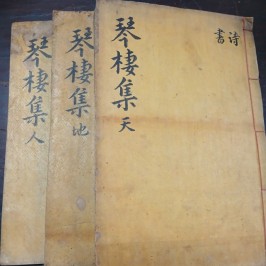 琴棲集 天
詩書
琴棲集 地
琴棲集 人